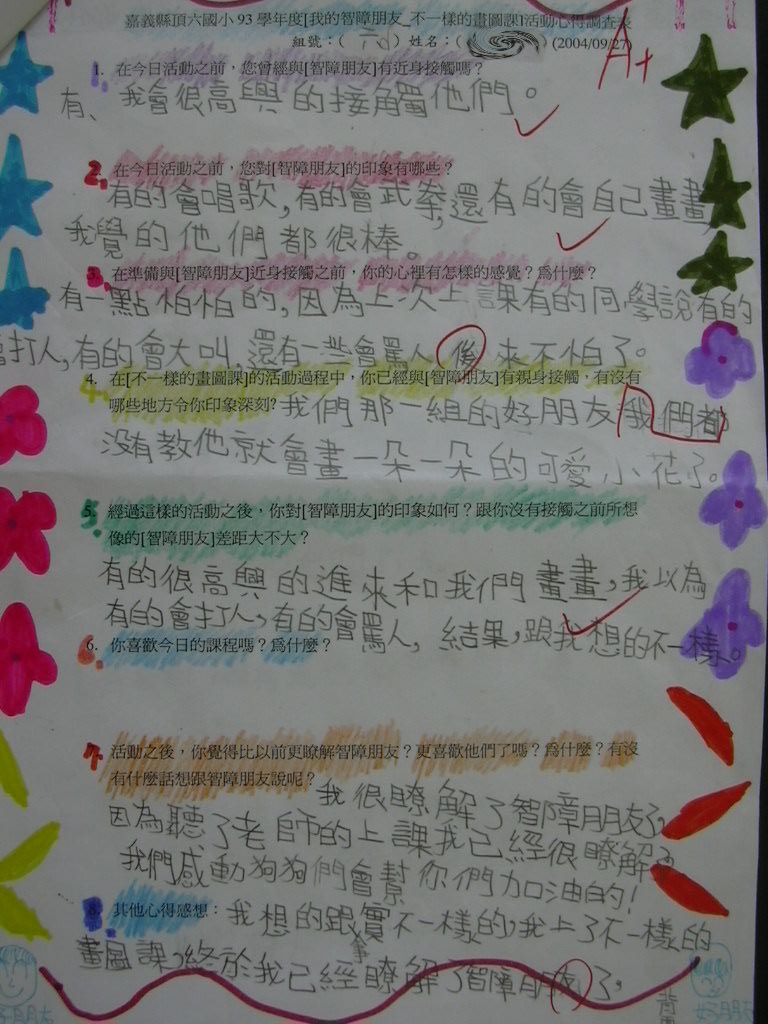 嘉義縣頂六國小93學年度[我的智障朋友_不一樣的畫圖課]活動心得調查表
組號：( 六 ) 姓名：( ) (2004/09/27)
A+
1. 在今日活動之前，您曾經與[智障朋友]有近身接觸嗎？
有、我會很高興的接觸他們。
2. 在今日活動之前，您對[智障朋友]的印象有哪些？
有的會唱歌,有的會武拳,還有的會自己畫畫,
我覺的他們都很棒。
3. 在準備與[智障朋友]近身接觸之前，你的心裡有怎樣的感覺？為什麼？
有一點怕怕的,因為上次上課有的同學說有的
會打人,有的會大叫,還有一些會罵人,後來不怕了。
4. 在[不一樣的畫圖課]的活動過程中，你已經與[智障朋友]有親身接觸，有沒有
哪些地方令你印象深刻?我們那一組的好朋友我們都
沒有教他就會畫一朵一朵的可愛小花了。
5. 經過這樣的活動之後，你對[智障朋友]的印象如何？跟你沒有接觸之前所想
像的[智障朋友]差距大不大？
有的很高興的進來和我們畫畫,我以為
有的會打人,有的會罵人,結果,跟我想的不一樣。
6. 你喜歡今日的課程嗎？為什麼？
7. 活動之後，你覺得比以前更瞭解智障朋友？更喜歡他們了嗎？為什麼？有沒
有什麼話想跟智障朋友說呢？我很瞭解了智障朋友了,
因為聽了老師的上課我已經很瞭解了
我們感動狗狗們會幫你們加油的!
8. 其他心得感想：我想的跟實不一樣的,我上了不一樣的
畫圖課,終於我已經瞭解了智障朋友了,
好朋友
背面
好朋友